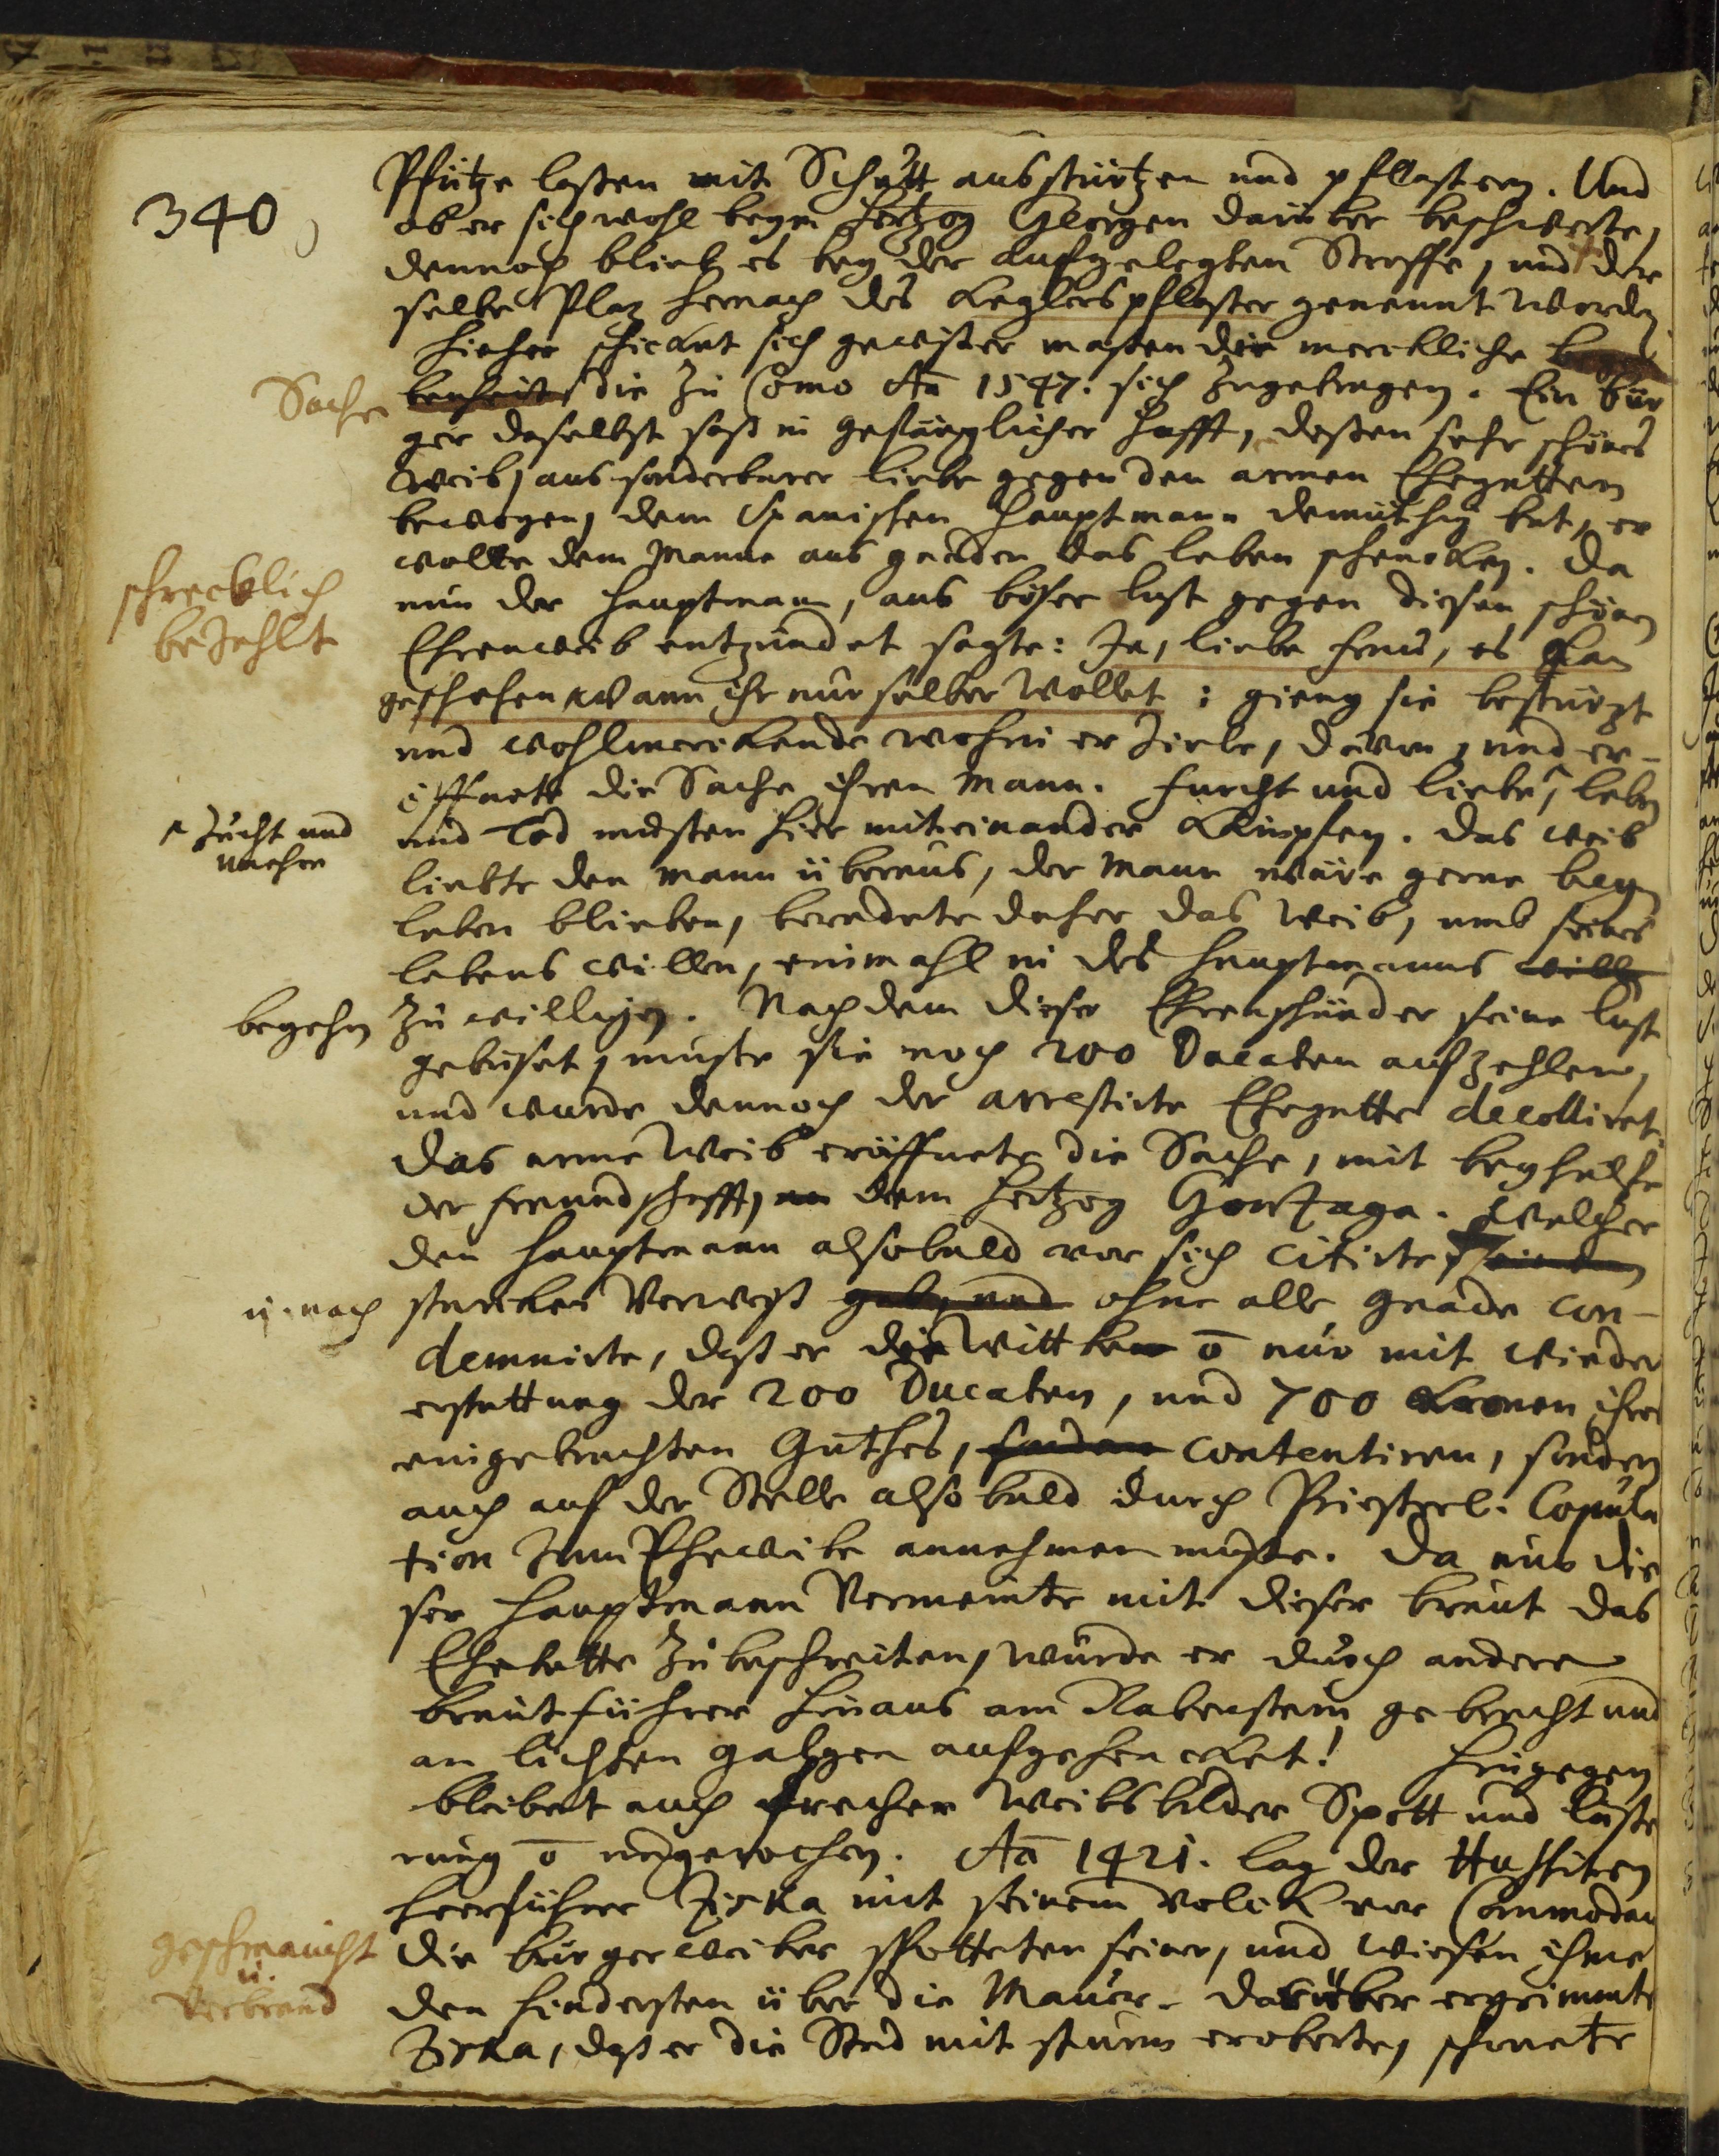 340
Pfütze laßen mit Schutt ausstürtzen und pflastern. Und
ob er sich wohl beym Hertzog Georgen darüber beschwerte,
dennoch blieb es bey der aufgelegten Straffe, und der
selbe Plaz hernach des Keglerspflaster genennt worden
Hieher schicket sich gewißer maßen die merckliche bege
Sache
benheit die zu Como Aõ 1547. sich zugetragen. Ein bür
ger daselbst saß in gefänglicher Hafft, deßen sehr schönes
Weib, aus sonderbarer liebe gegen den armen Ehegatten
bewogen, dem Spanischen Hauptmann demüthig bat, er
wolte dem Manne aus gnaden das leben schencken. Da
schrecklich
bezahlt
nun der Hauptmann, aus böser lust gegen diesen schönen
Ehrenweib entzündet sagte: Ja, liebe frau, es kan
geschehen wann ihr nur selber wollet: gieng sie bestürzt
und wohlmerckende wohin er ziele, davon, und er-
öffnete die Sache ihrem Mann. Furcht und liebe, leben
Zucht und
unehre
und Tod musten hier miteinander kämpfen. Das weib
liebte den Mann überaus, der Mann wäre gerne beym
leben blieben, beredete daher das Weib, umb seines
lebens willen, einmahl in des Hauptmanns willen
begehrn
zu willigen. Nachdem dieser Ehrenschänder seine lust
gebüset, muste sie noch 200 Ducaten aufzehlen,
und wurde dennoch der arrestirte Ehegatte decolliret.
Das arme Weib eröffnete die Sache, mit beyhülfe
der freundschafft, dem Hertzog Gonzaga. Welcher
den Hauptmann alsobald vor sich citirte,
u. nach
starcken Verweiß gab, und ohne alle gnade con-
demnirte, daß er die Wittbe õ nur mit wieder
erstattung der 200 Ducaten, und 700 Kronen ihres
eingebrachten Guthes, sondern contentiren, sondern
auch auf der Stelle alsobald durch Priesterl. Copula
tion zum Eheweibe annehmen muste. Da nun die
ser Hauptmann Vermeinte mit dieser braut das
Ehebette zubeschreiten, wurde er durch andere
brautführer hinaus am Rabenstein gebracht und
an lichten galgen aufgehencket! Hingegen
bleibet auch frecher Weibsbilder Spott und läste
rung õ ungerochen. Aõ 1421. lag der Hussiten
Heerführer Ziska mit seinem Volck vor Commodau
geschmaucht
u.
verbrand
die bürgerweiber spotteten seiner, und wiesen ihme
den hindersten über die Mauer. Darüber ergrimmte
Ziska, daß er die Stad mit sturm eroberte, schonete